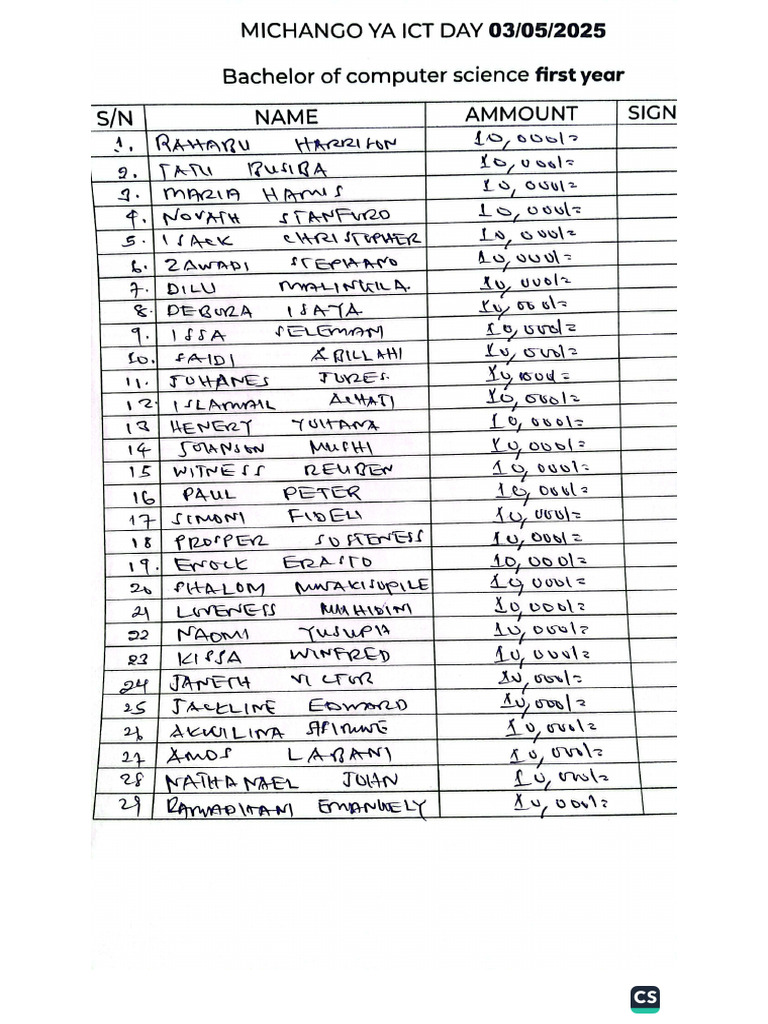 MICHANGO YA ICT DAY 03/05/2025
Bachelor of computer science first year
S/N NAME AMMOUNT SIGN
1. RAHABU HARRISON 10,000/=
2. TATU BUSIBA 10,000/=
3. MARIA HAMIS 10,000/=
4. NOVATH STANFORD 10,000/=
5. ISACK CHRISTOPHER 10,000/=
6. ZAWADI STEPHANO 10,000/=
7. DILU 10,000/=
8. DEBORA ISAYA 10,000/=
9. ISSA SELEMANI 10,000/=
10. SAIDI ABILLAHI 10,000/=
11. JOHANES JORES. 10,000/=
12. 10,000/=
13 HENERY YOHANA 10,000/=
14 JOHNSON MUSHI 10,000/=
15 WITNESS REUBEN 10,000/=
16 PAUL PETER 10,000/=
17 SIMONI FIDELI 10,000/=
18 PROSPER SOSTENESS 10,000/=
19. ENOCK ERASTO 10,000/=
20 SHALOM MWAKISOPILE 10,000/=
21 LOVENESS MUHIDINI 10,000/=
22 NAOMI YUSUPH 10,000/=
23 KISSA WINFRED 10,000/=
24 JANETH VICTOR 10,000/=
25 JACKLINE EDWARD 10,000/=
26 AKWILINA 10,000/=
27 AMOS LABANI 10,000/=
28 NATHANAEL JOHN 10,000/=
29 EMANUELY 10,000/=
CS